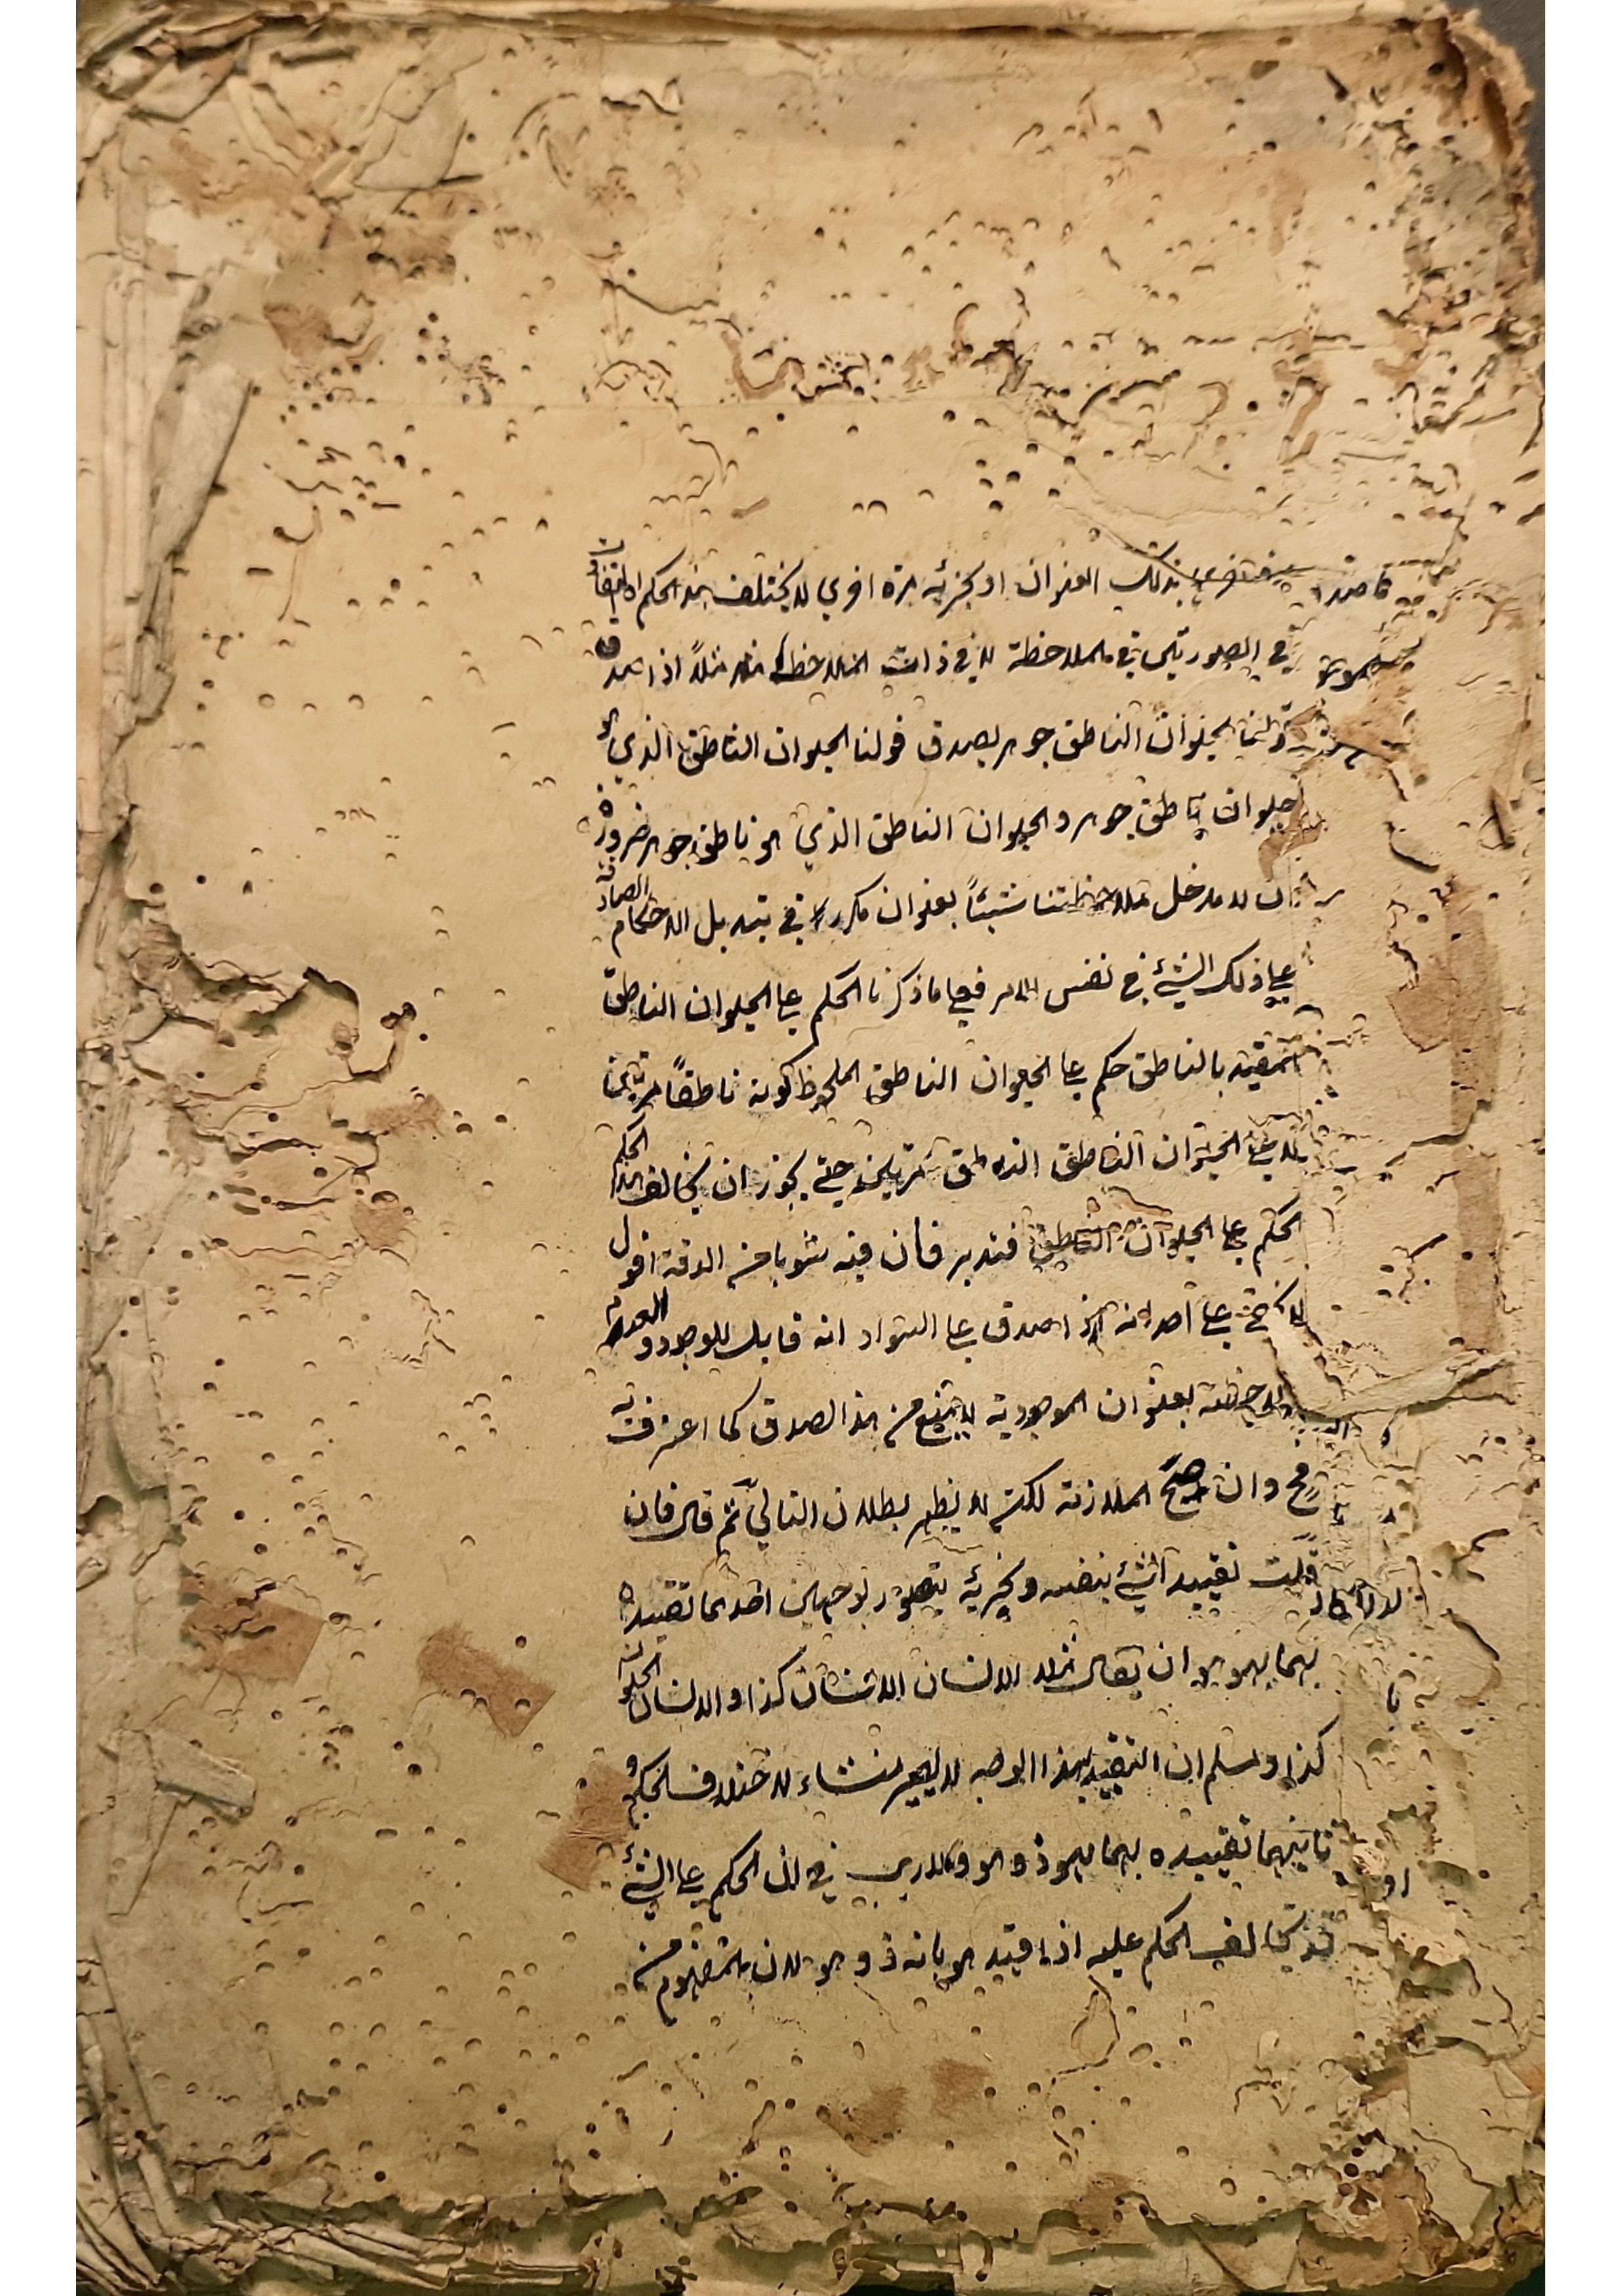 بذلك العنوان او بجزئه مرة اخرى لا يختلف هذا الحكم
في الصورتين في الملاحظة لا في ذات الملاحظ هذا مثلاً اذا صدق
قولنا الحيوان الناطق جوهر يصدق قولنا الحيوان الناطق الذي هو
حيوان ناطق جوهر والحيوان الناطق الذي هو ناطق جوهر ضرورة
ان لا مدخل لملاحظتنا شيئاً بعنوان مكرر في تبديل الاحكام الصادقة
على ذلك الشيء في نفس الامر فعلى ما ذكرنا الحكم على الحيوان الناطق
المقيد بالناطق حكم على الحيوان الناطق الملحوظ كونه ناطقاً مرتين
لا على الحيوان الناطق الناطق مرتين حتى يجوز ان يخالف هذا الحكم
الحكم على الحيوان الناطق فتدبر فان فيه شوبا من الدقة اقول
لا يخفى على احد انه اذا صدق على السواد انه قابل للوجود والعدم
لملاحظته بعنوان الموجودية لا يمتنع من هذا الصدق كما اعترفت به
فح وان صح الملازمة لكنه لا يظهر بطلان التالي ثم قال فان
قلت تقييد الشيء بنفسه وبجزئه يتصور بوجهين احدهما تقييده
بهما بهو هو ان يقال مثلا الانسان الانسان كذا والانسان الحيوان
كذا ومسلم ان التقييد بهذا الوجه لا يصير منشاء لاختلاف الحكم و
ثانيهما تقييده بهما بهو ذو هو ولا ريب في ان الحكم على الشيء
قد يخالف الحكم عليه اذا قيد هو بانه ذو هو لان المفهوم من